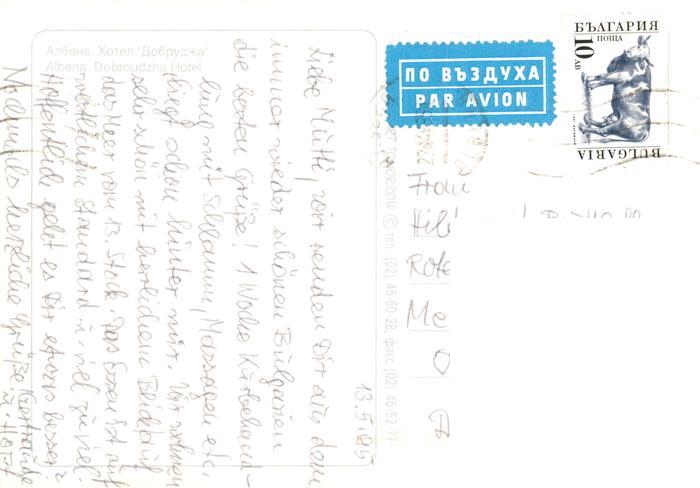 Албена. Хотел "Добруджа"
Albena. Dobroudzha Hotel
ПО ВЪЗДУХА
PAR AVION
БЪЛГАРИЯ
ПОЩА
10 ЛВ
BULGARIA
13.5.95
Liebe Mutti, wir senden Dir aus dem
immer wieder schönen Bulgarien
die besten Grüße! 1 Woche Kurbehand-
lung mit Schlamm, Massagen etc.
liegt schon hinter mir. Wir wohnen
sehr schön mit herrlichem Blick auf
das Meer vom 13. Stock. Das Essen ist auf
westlichem Standard u. viel zu viel.
Hoffentlich geht es Dir etwas besser?
Nochmals herzliche Grüße Gertraude
u. Horst
© тел. (02) 46 60-28, факс (02) 46-52-77
Frau
Rote
Me
O